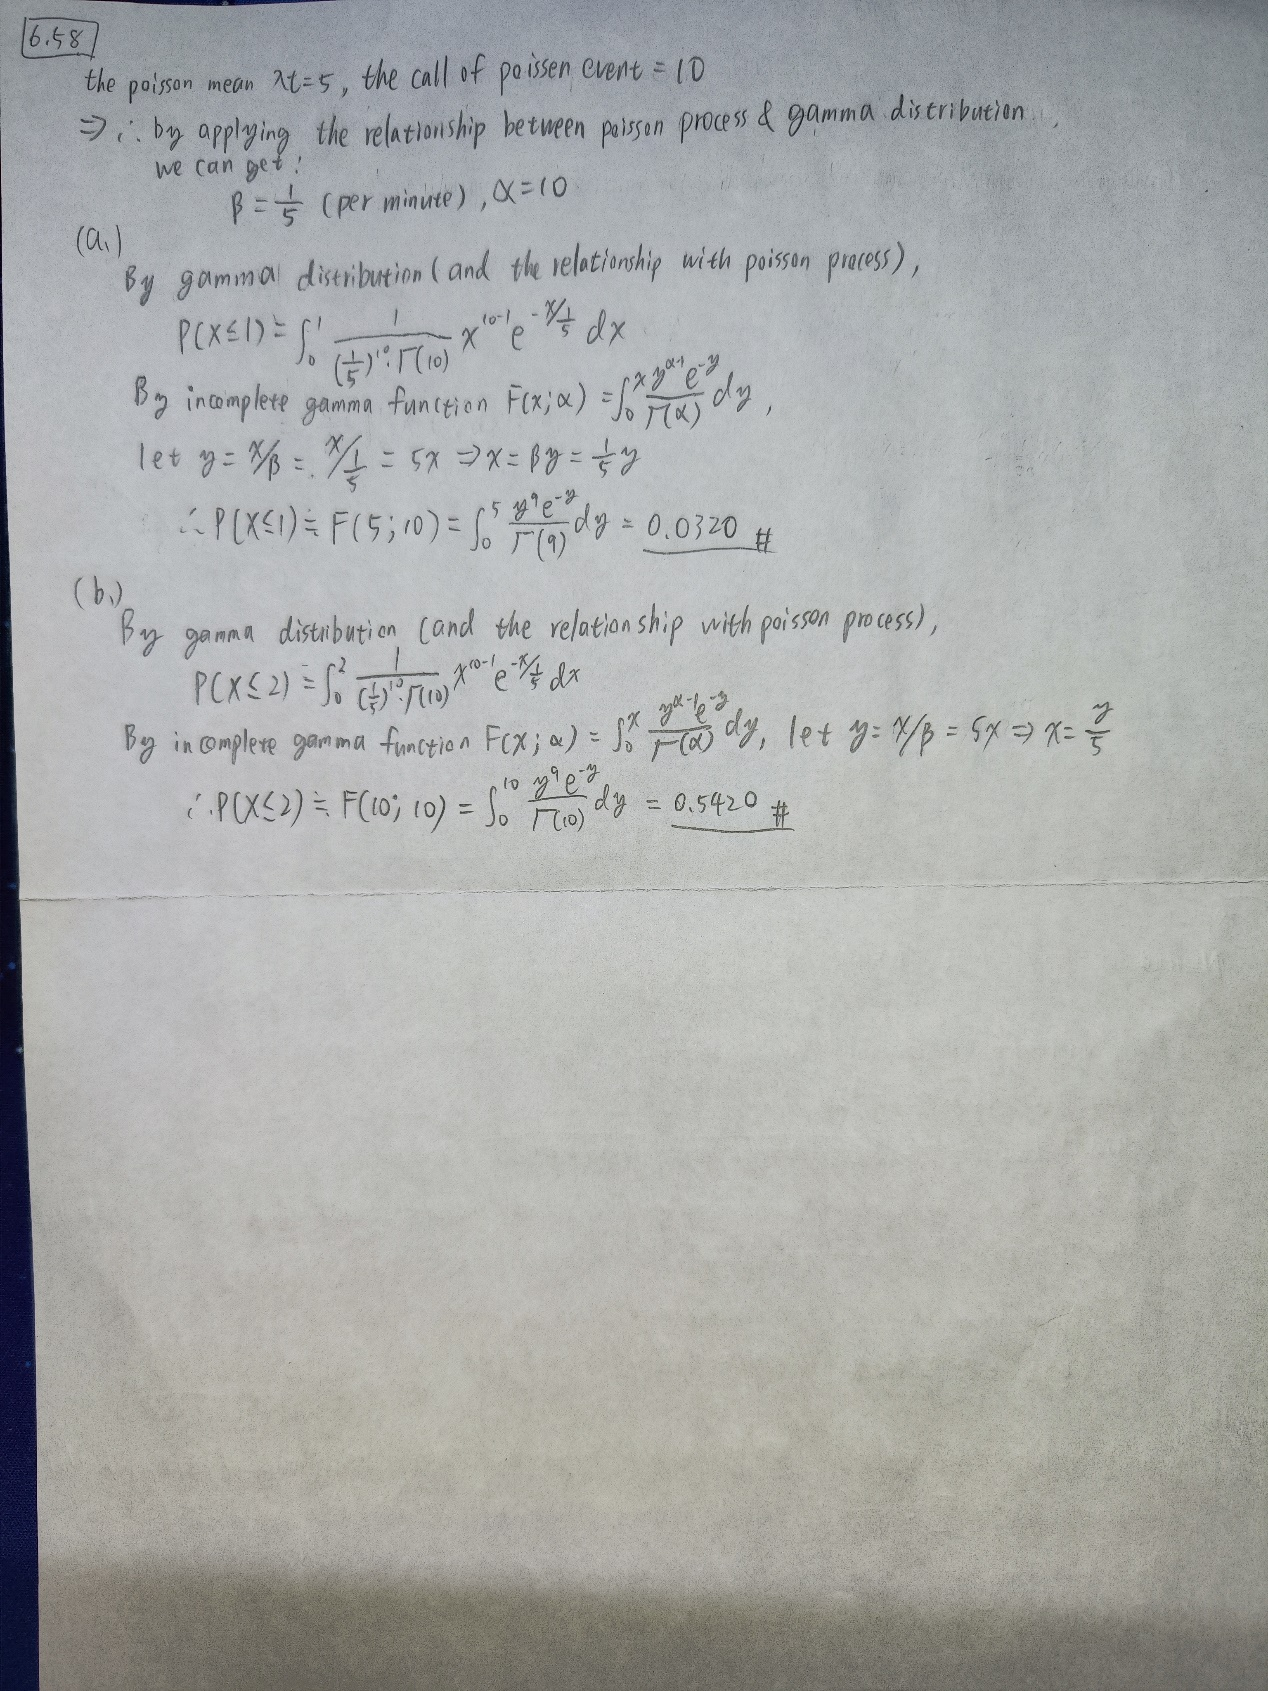 6.58
the poisson mean λt=5, the call of poissen event = 10
⇒ ∴ by applying the relationship between poisson process & gamma distribution
we can get:
β = 1/5 (per minute), α=10
(a.)
By gamma distribution (and the relationship with poisson process),
P(X≤1) ≒ ∫₀¹ 1/((1/5)¹⁰·Γ(10)) x¹⁰⁻¹ e^(-x/(1/5)) dx
By incomplete gamma function F(x;α) = ∫₀ˣ y^(α-1)e^(-y)/Γ(α) dy,
let y = x/β = x/(1/5) = 5x ⇒ x = βy = 1/5 y
∴ P(X≤1) ≒ F(5;10) = ∫₀⁵ y⁹e^(-y)/Γ(9) dy = 0.0320 #
(b.)
By gamma distribution (and the relationship with poisson process),
P(X≤2) ≒ ∫₀² 1/((1/5)¹⁰·Γ(10)) x¹⁰⁻¹ e^(-x/(1/5)) dx
By incomplete gamma function F(x;α) = ∫₀ˣ y^(α-1)e^(-y)/Γ(α) dy, let y = x/β = 5x ⇒ x = y/5
∴ P(X≤2) ≒ F(10; 10) = ∫₀¹⁰ y⁹e^(-y)/Γ(10) dy = 0.5420 #